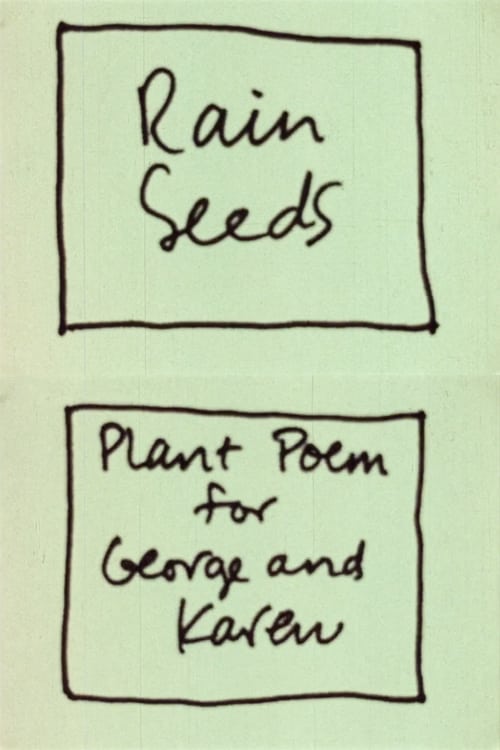 Rain
Seeds
Plant Poem
for
George and
Karen